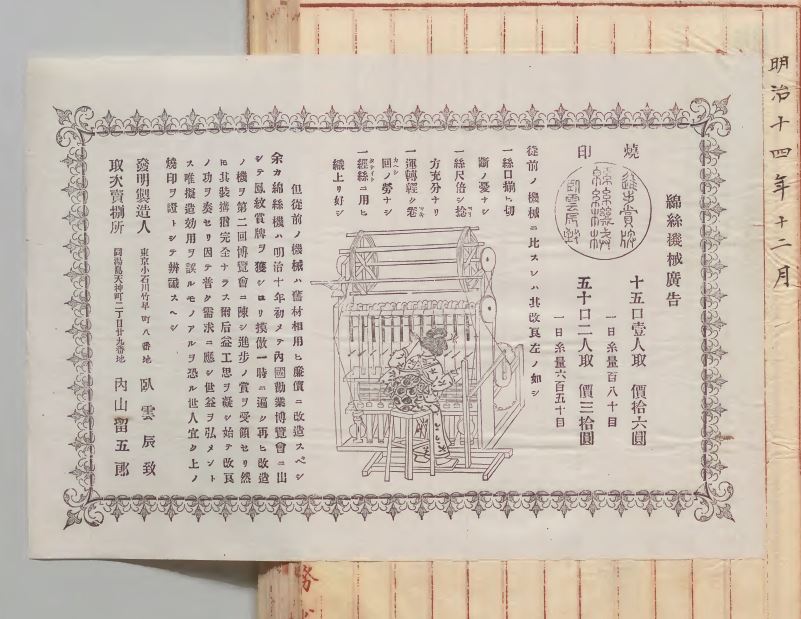 明治十四年十二月
綿絲機械廣告
十五口壹人取 價拾六圓
一日糸量百八十目
五十口二人取 價三拾圓
一日糸量六百五十目
燒印
進歩賞牌
綿絲機械
臥雲辰致
從前ノ機械ニ比スレハ其改良左ノ如シ
一絲口揃ヒ切
斷ノ憂ナシ
一絲尺倍シ捻
方充分ナリ
一運轉輕シ卷
回ノ勞ナシ
カヘシ
一經絲ニ用ヒ
タテイト
織上リ好シ
但從前ノ機械ハ舊材相用ヒ廉價ニ改造スベシ
余カ綿絲機ハ明治十年初メテ內國勸業博覽會ニ出
シテ鳳紋賞牌ヲ獲シヨリ摸倣一時ニ遍シ再ヒ改造
ノ機ヲ第二回博覽會ニ陳シ進歩ノ賞ヲ受領セリ然
ヒ其裝搆猶完全ナラス爾后益工思ヲ凝シ始テ改良
ノ功ヲ奏セリ因テ普ク需求ニ應シ世益ヲ弘メント
ス唯擬造効用ヲ誤ルモノアルヲ恐ル世人宜ク上ノ
燒印ヲ證トシテ辨識スヘシ
發明製造人 東京小石川竹早町八番地 臥雲辰致
取次賣捌所 同湯島天神町二丁目廿九番地 內山留五郎